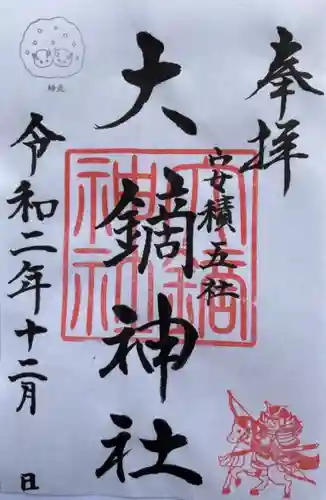 奉拝
安積五社
大鏑神社
令和二年十二月 日
大鏑
神社